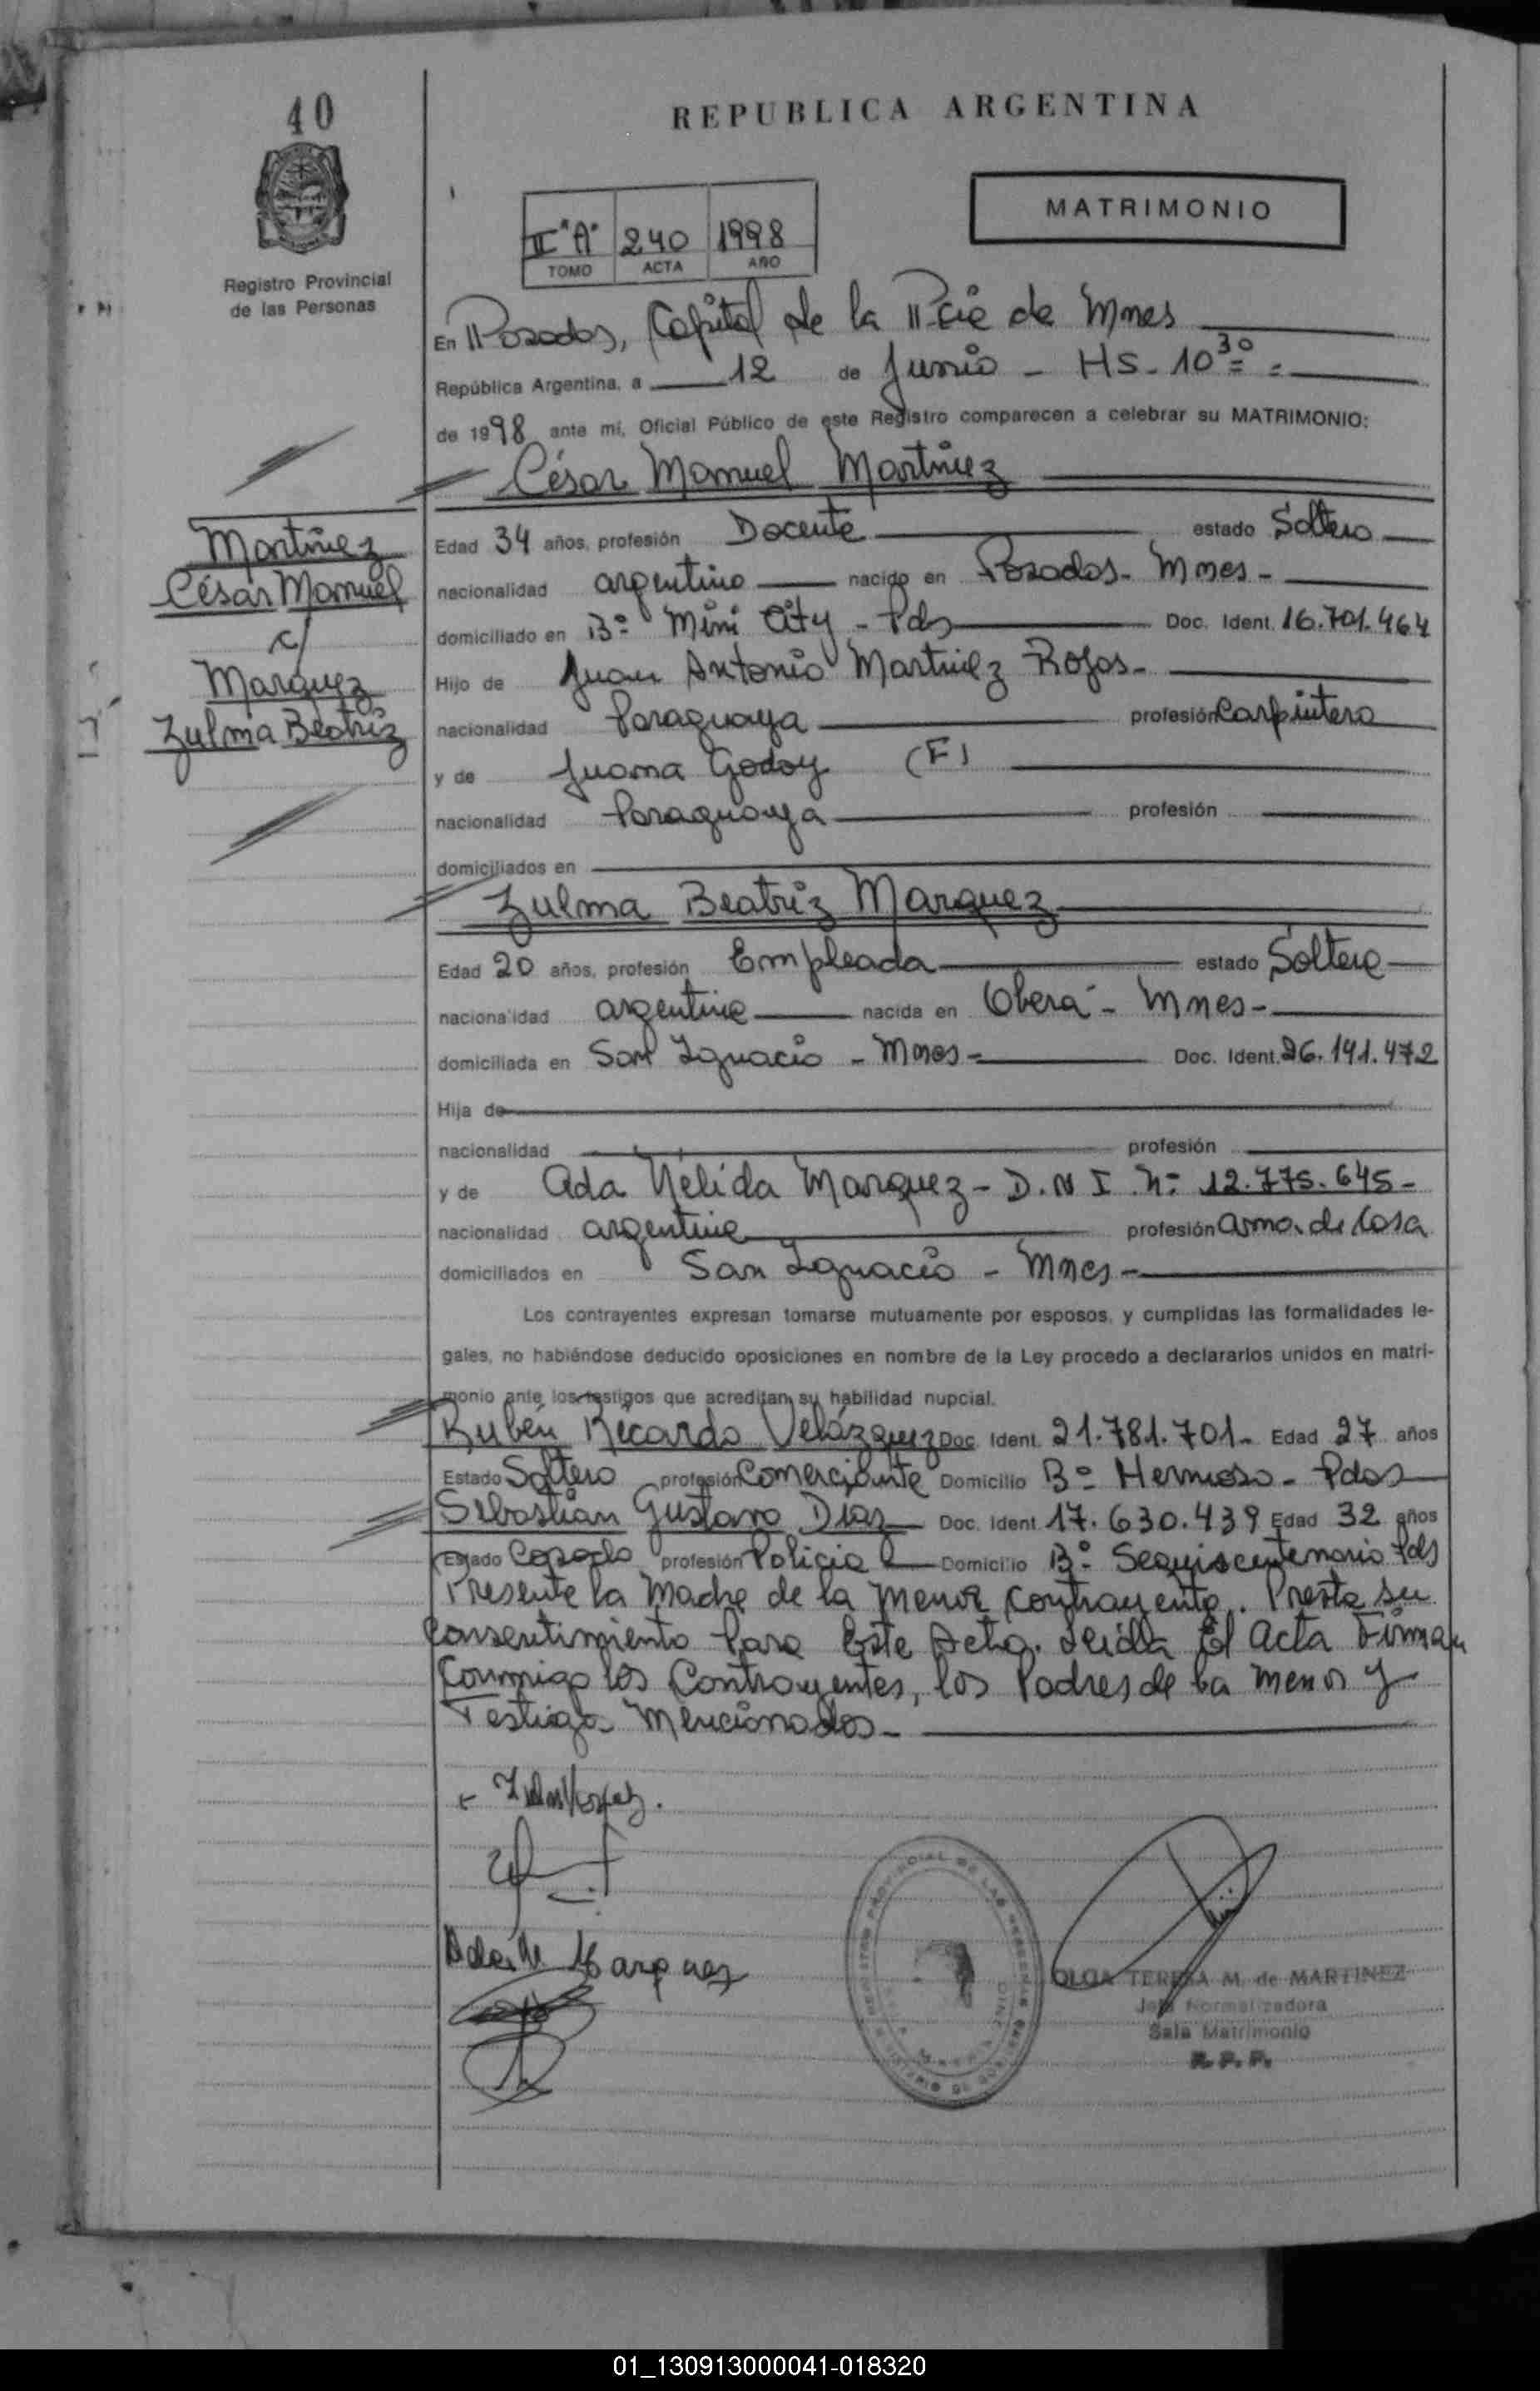 40
REPUBLICA ARGENTINA
MATRIMONIO
II "A" 240 1998
TOMO ACTA AÑO
Registro Provincial
de las Personas
En Posadas, Capital de la Pcia de Mnes
República Argentina, a 12 de Junio - HS. 10 30 =
de 1998 ante mí, Oficial Público de este Registro comparecen a celebrar su MATRIMONIO:
César Manuel Martínez
Martínez
César Manuel
c/
Marquez
Zulma Beatriz
Edad 34 años, profesión Docente estado Soltero
nacionalidad argentino nacido en Posadas - Mnes -
domiciliado en Bº Mini City - Pds Doc. Ident. 16.701.464
Hijo de Juan Antonio Martinez Rojas -
nacionalidad Paraguaya profesión Carpintero
y de Juana Godoy (F)
nacionalidad Paraguaya profesión
domiciliados en
Zulma Beatriz Marquez
Edad 20 años, profesión Empleada estado Soltera
nacionalidad argentina nacida en Oberá - Mnes -
domiciliada en San Ignacio - Mnes - Doc. Ident. 26.191.472
Hija de
nacionalidad profesión
y de Ada Nélida Marquez - D.N I Nº 12.775.645 -
nacionalidad argentina profesión ama de Casa
domiciliados en San Ignacio - Mnes -
Los contrayentes expresan tomarse mutuamente por esposos, y cumplidas las formalidades le-
gales, no habiéndose deducido oposiciones en nombre de la Ley procedo a declararlos unidos en matri-
monio ante los testigos que acreditan su habilidad nupcial.
Rubén Ricardo Velázquez Doc. Ident. 21.781.701 - Edad 27 años
Estado Soltero profesión Comerciante Domicilio Bº Hermoso - Pdas
Sebastian Gustavo Diaz Doc. Ident. 17.630.439 Edad 32 años
Estado Casado profesión Policia Domicilio Bº Sesquicentenario Pds
Presente la Madre de la menor contrayente. Presta su
Consentimiento Para Este Acto. Leida El Acta Firman
Conmigo los Contrayentes, los Padres de la menor y
Testigos Mencionados -
Marquez
OLGA TERESA M. de MARTINEZ
Jefa Normalizadora
Sala Matrimonio
R. P. P.
01_130913000041-018320